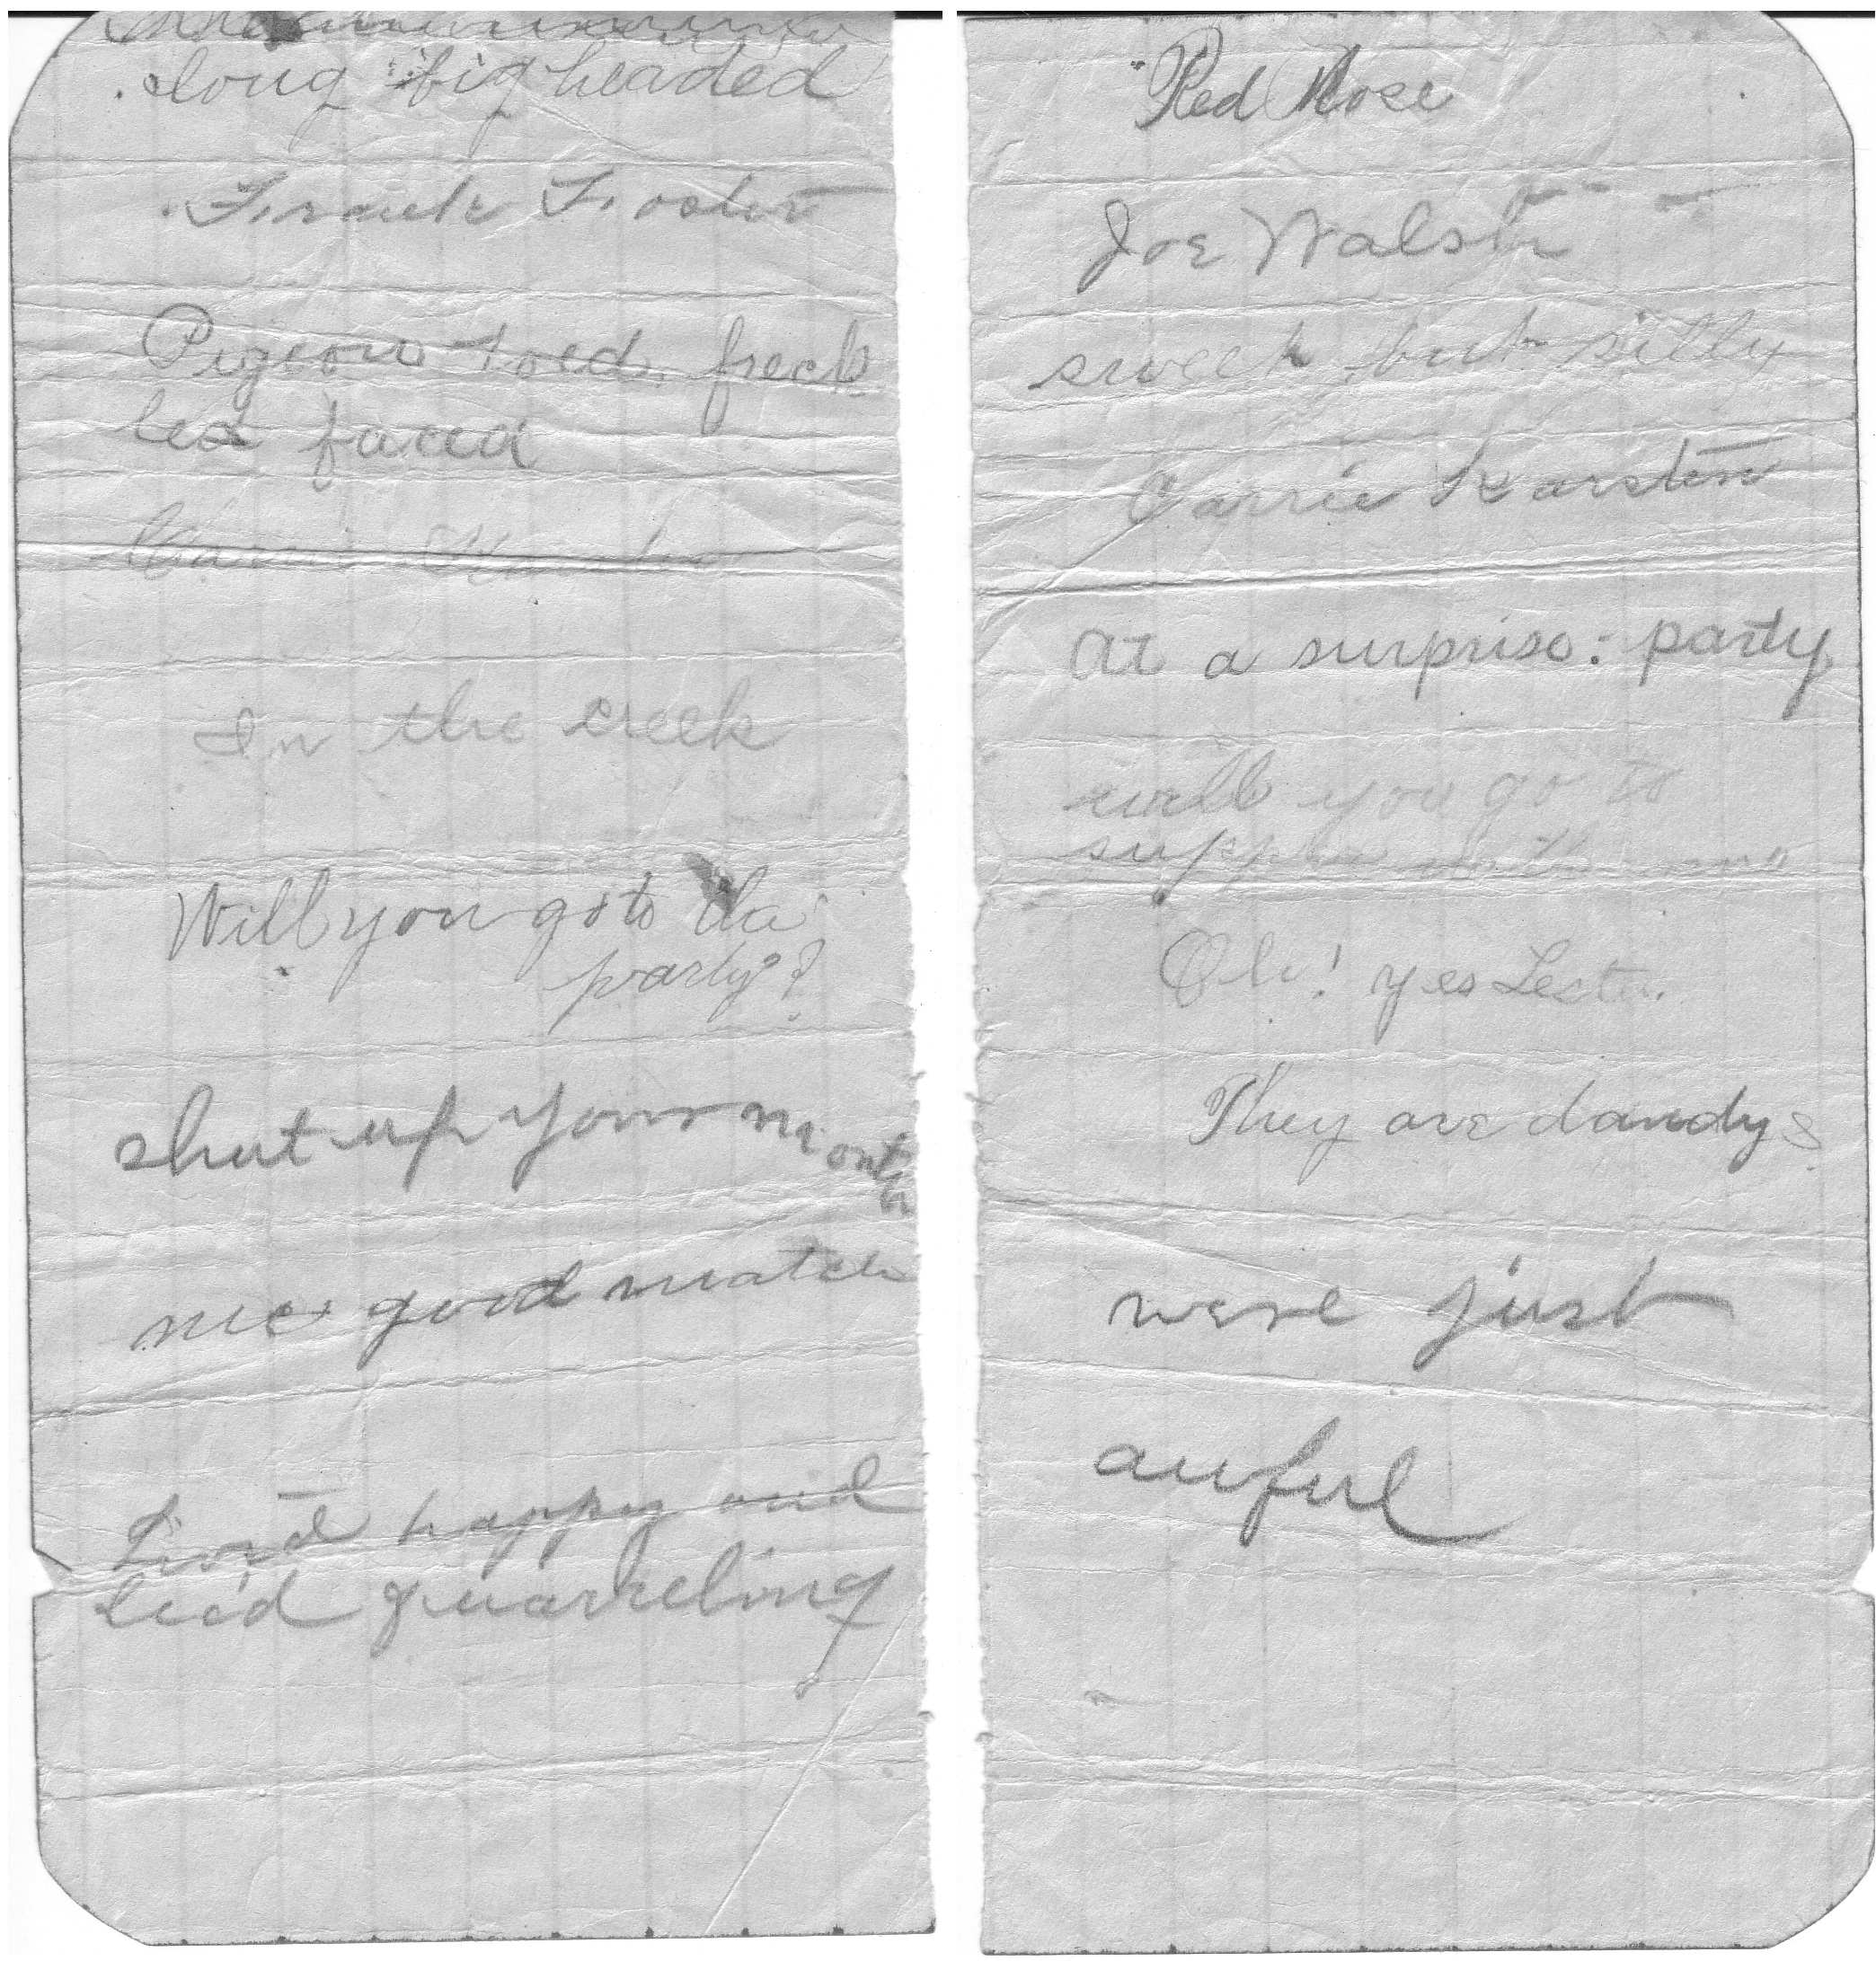 long big headed
Frank Foster
Pigeon toed, freck
led faced
In the creek
Will you go to the
party?
shut up your mouth
me good match
Liv'd happy and
Lie'd quarreling
Red Nose
Joe Walsh
sweet but silly
Carrie Karsten
At a surprise: party
will you go to
supper with me
Oh! yes Lester.
They are dandys
were just
awful